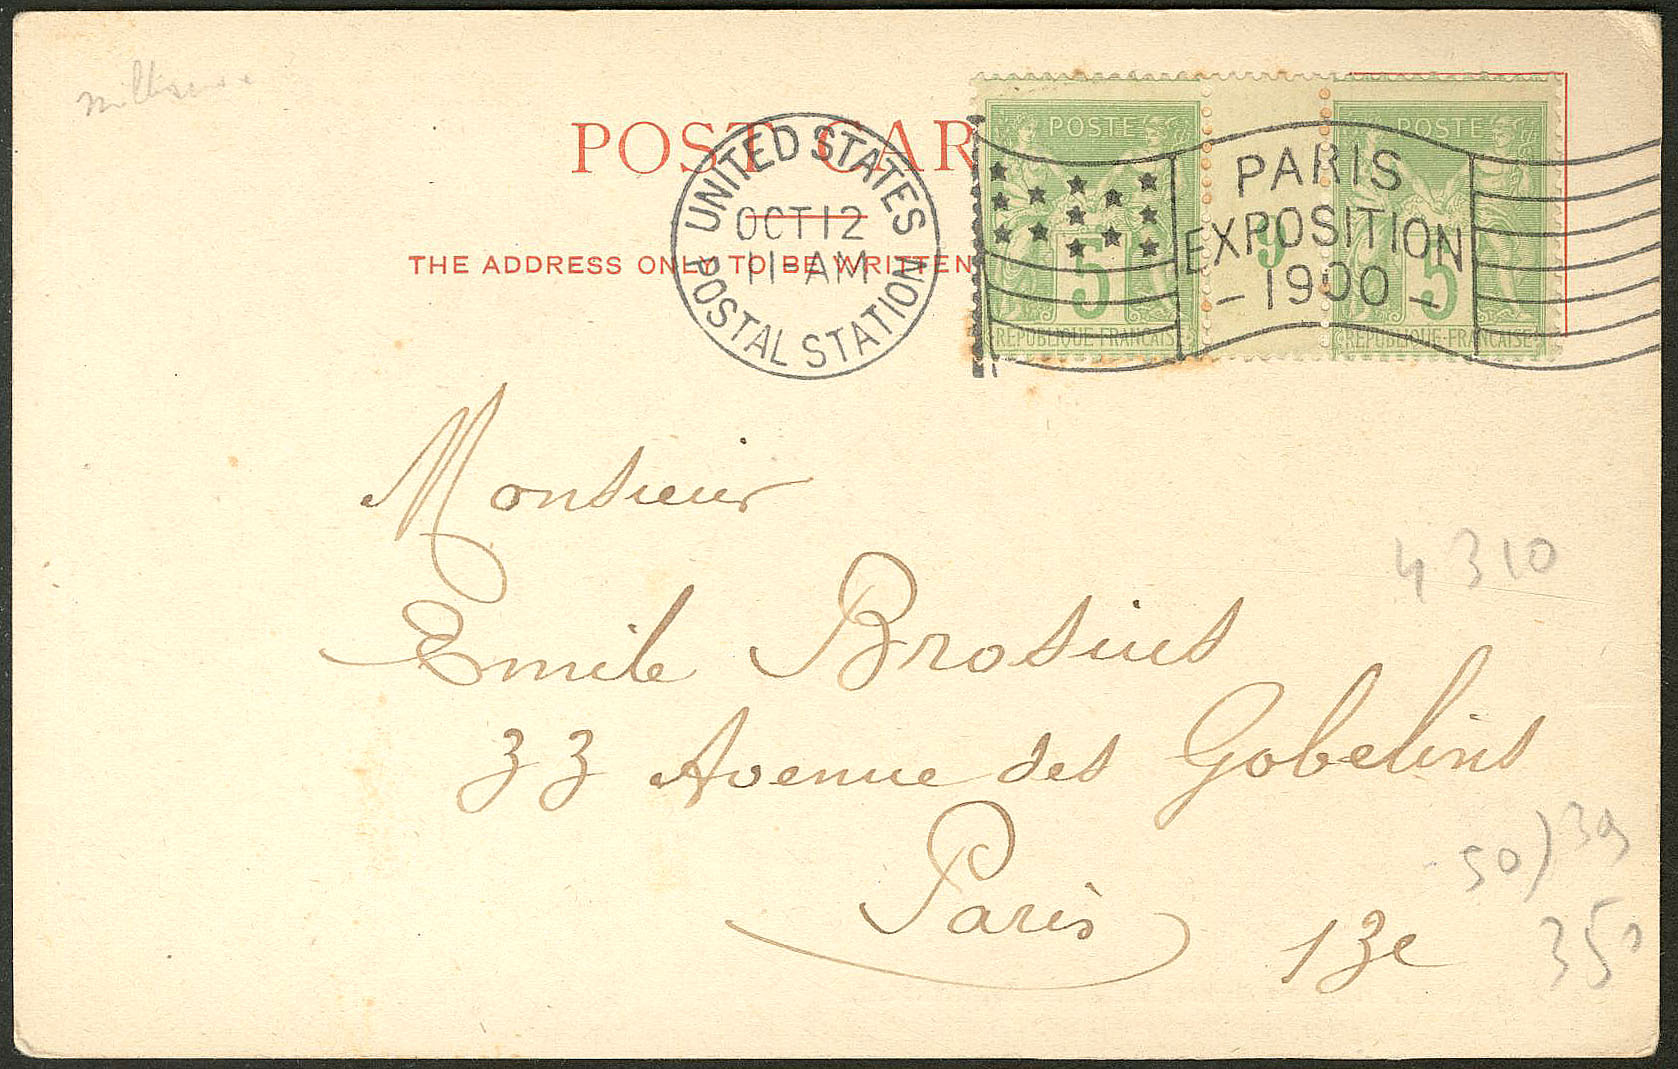 POST CAR
THE ADDRESS ONLY TO BE WRITTEN
UNITED STATES POSTAL STATION
OCT 12
11-AM
POSTE
5
REPUBLIQUE FRANCAIS
3
POSTE
5
REPUBLIQUE-FRANCAISE
PARIS
EXPOSITION
- 1900 -
Monsieur
Emile Brosius
33 Avenue des Gobelins
Paris 13e
4310
50) 39
350